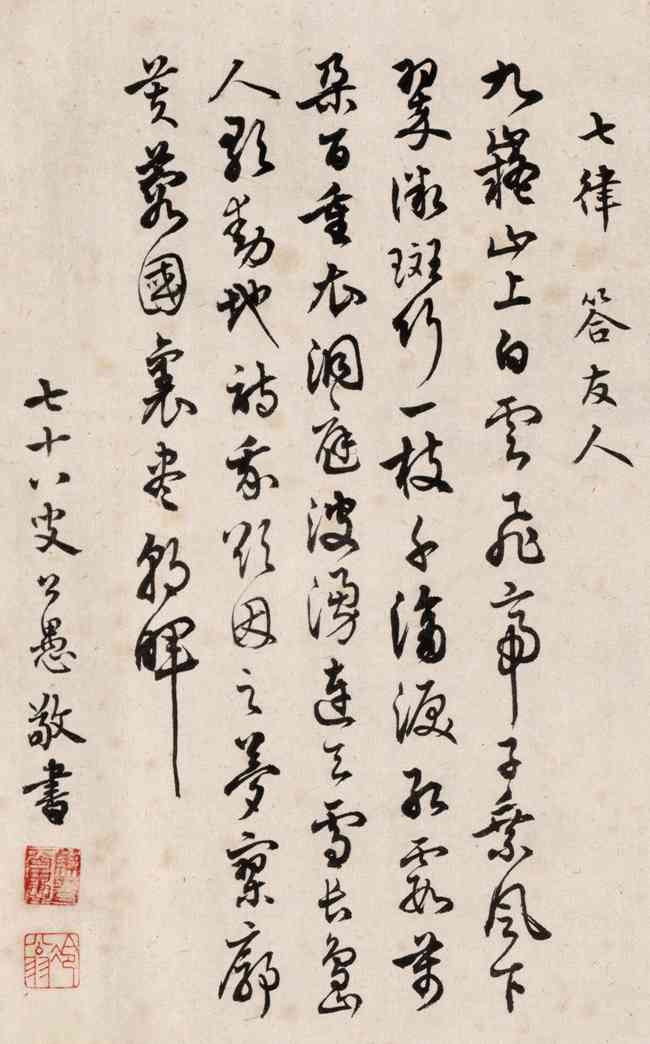 七律 答友人
九嶷山上白雲飛帝子乘風下
翠微斑竹一枝千滴淚紅霞萬
朵百重衣洞庭波湧連天雪長島
人歌動地詩我欲因之夢寥廓
芙蓉國裏盡朝暉
七十八叟公愚敬書
冷翁